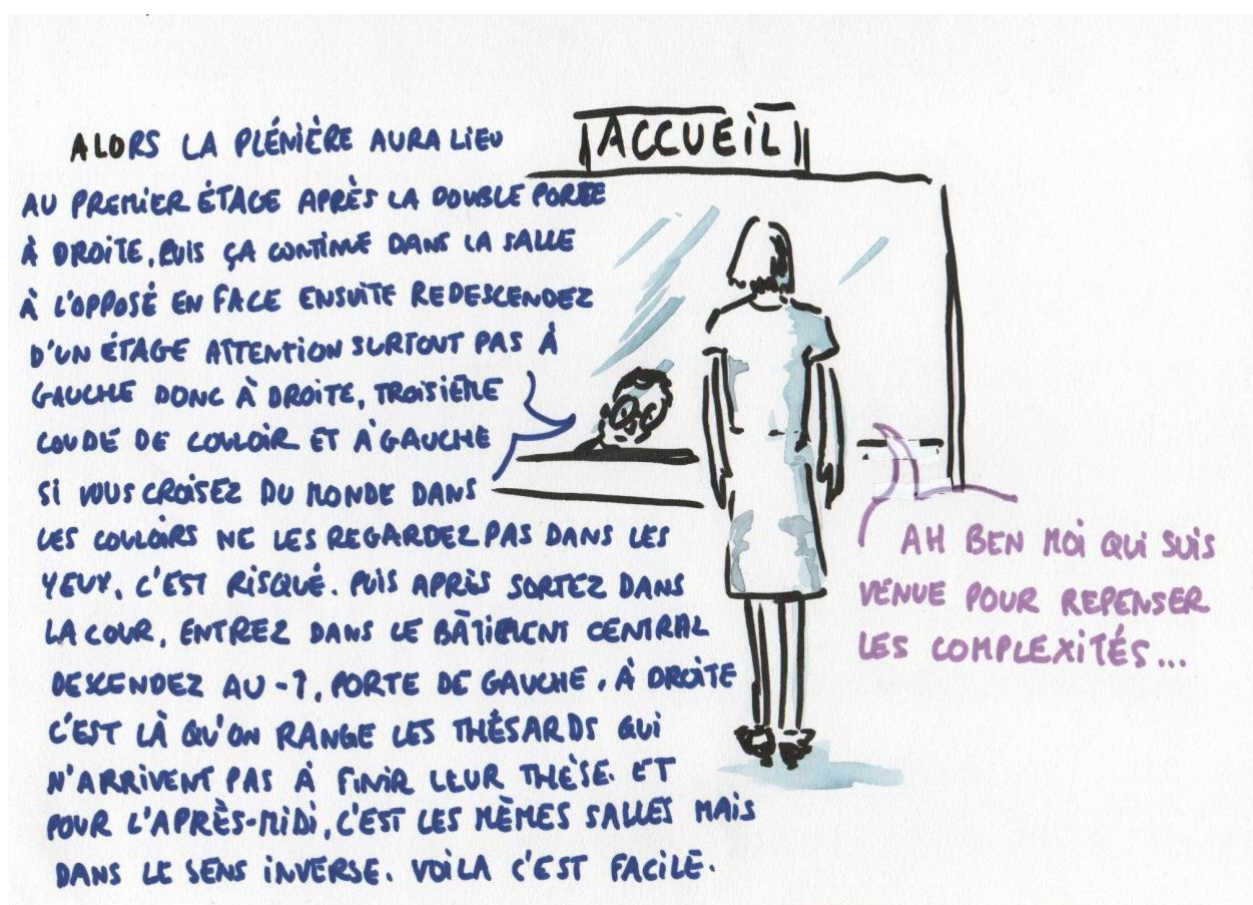 ACCUEIL
ALORS LA PLÉNIÈRE AURA LIEU
AU PREMIER ÉTAGE APRÈS LA DOUBLE PORTE
À DROITE, PUIS ÇA CONTINUE DANS LA SALLE
À L'OPPOSÉ EN FACE ENSUITE REDESCENDEZ
D'UN ÉTAGE ATTENTION SURTOUT PAS À
GAUCHE DONC À DROITE, TROISIÈME
COUDE DE COULOIR ET À GAUCHE
SI VOUS CROISEZ DU MONDE DANS
LES COULOIRS NE LES REGARDEZ PAS DANS LES
YEUX, C'EST RISQUÉ. PUIS APRÈS SORTEZ DANS
LA COUR, ENTREZ DANS LE BÂTIMENT CENTRAL
DESCENDEZ AU -1, PORTE DE GAUCHE. À DROITE
C'EST LÀ QU'ON RANGE LES THÉSARDS QUI
N'ARRIVENT PAS À FINIR LEUR THÈSE. ET
POUR L'APRÈS-MIDI, C'EST LES MÊMES SALLES MAIS
DANS LE SENS INVERSE. VOILA C'EST FACILE.
AH BEN MOI QUI SUIS
VENUE POUR REPENSER
LES COMPLEXITÉS...